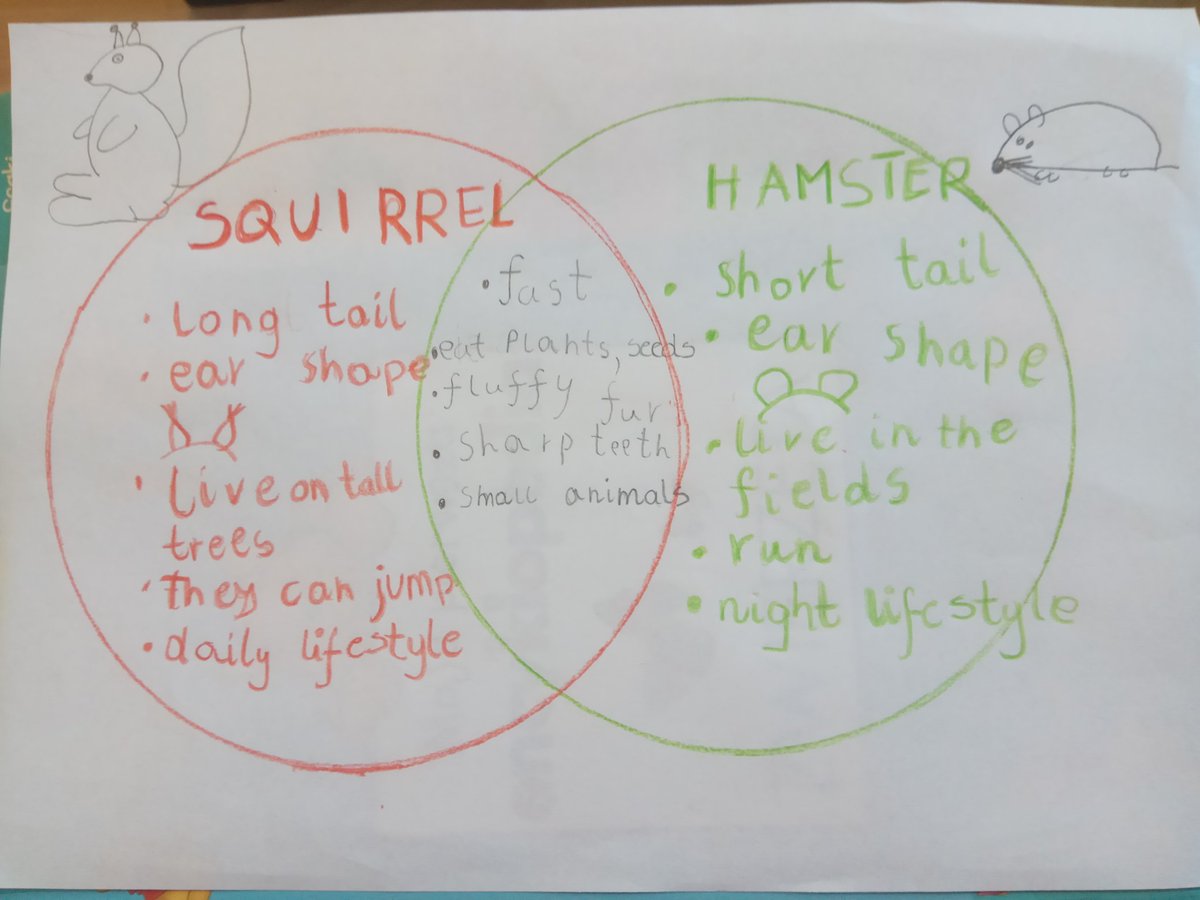 SQUIRREL
• Long tail
• ear shape
• Live on tall
trees
• they can jump
• daily lifestyle
• fast
• eat plants, seeds
• fluffy fur
• sharp teeth
• small animals
HAMSTER
• short tail
• ear shape
• live in the
fields
• run
• night lifestyle